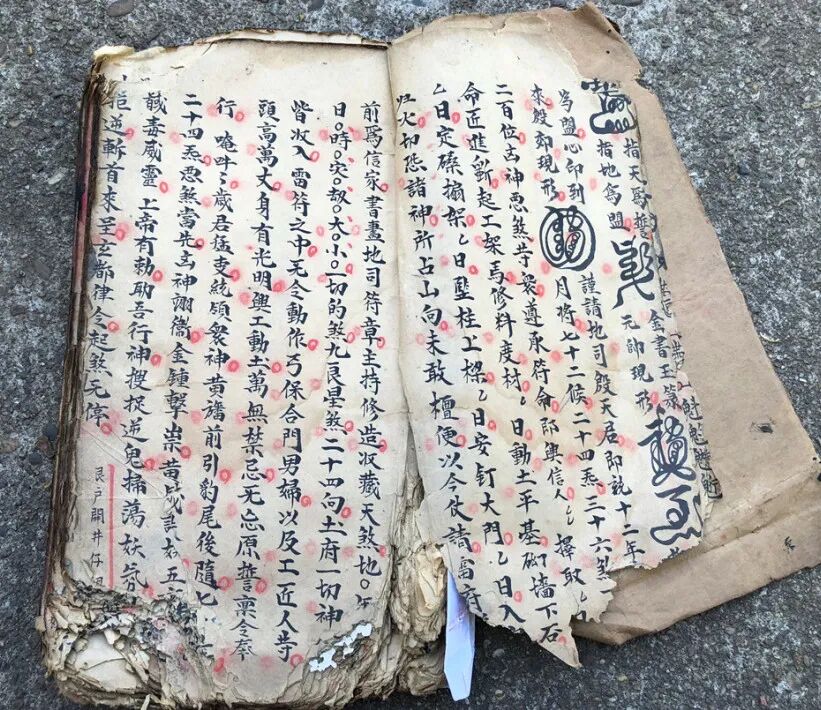 指天爲誓
指地爲盟
金書玉篆
元帥現形
爲盟心印到
來殷郊現形
謹請地司殷天君郎説十二年
月將七十二候二十四炁三十六煞
二百位古神惡煞等衆遵承符命即與信人乙擇取乙
命匠進斷起工架馬修料度材乙日動土平基砌墻下石
乙日定磉搧架乙日竪柱上樑乙日安釘大門乙日入
归火切恐諸神所占山向未敢擅便以今仗請雷府
前爲信家書畫地司符章主持修造收藏天煞地年
日時灾刼大小一切的煞九良星煞二十四向土府一切神
皆收入雷符之中无令動作弓保合門男婦以及工匠人等
頭高萬丈身有光明興工動土萬無禁忌无忘原誓禀令奉
行 唵吽乙歲君猛吏統領衆神黄旛前引豹尾後隨七
二十四炁惡煞當先凶神翊衛金鍾擊祟黄
毒威靈上帝有勅助吾行神搜捉逆鬼掃蕩妖氛
拒逆斬首來呈玄都律令起煞无停
開井仔